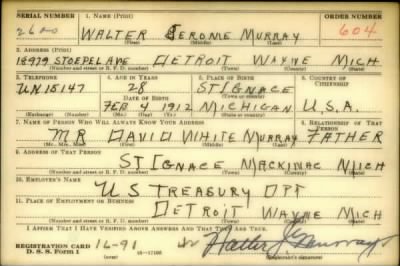 SERIAL NUMBER 1. NAME (Print) ORDER NUMBER
WALTER JEROME MURRAY 604
(First) (Middle) (Last)
2. ADDRESS (Print)
18979 STOEPEL AVE DETROIT WAYNE MICH
(Number and street or R. F. D. number) (Town) (County) (State)
3. TELEPHONE 4. AGE IN YEARS 5. PLACE OF BIRTH 6. COUNTRY OF CITIZENSHIP
UN 15147 28 ST IGNACE
DATE OF BIRTH (Town or county)
FEB 4 1912 MICHIGAN U.S.A.
(Exchange) (Number) (Mo.) (Day) (Yr.) (State or country)
7. NAME OF PERSON WHO WILL ALWAYS KNOW YOUR ADDRESS 8. RELATIONSHIP OF THAT PERSON
MR DAVID WHITE MURRAY FATHER
(Mr., Mrs., Miss) (First) (Middle) (Last)
9. ADDRESS OF THAT PERSON
ST IGNACE MACKINAC MICH
(Number and street or R. F. D. number) (Town) (County) (State)
10. EMPLOYER'S NAME
US TREASURY DPT
11. PLACE OF EMPLOYMENT OR BUSINESS
DETROIT WAYNE MICH
(Number and street or R. F. D. number) (Town) (County) (State)
I AFFIRM THAT I HAVE VERIFIED ABOVE ANSWERS AND THAT THEY ARE TRUE.
REGISTRATION CARD 16-91
D. S. S. Form 1 Walter J Murray
(over) (Registrant's signature)